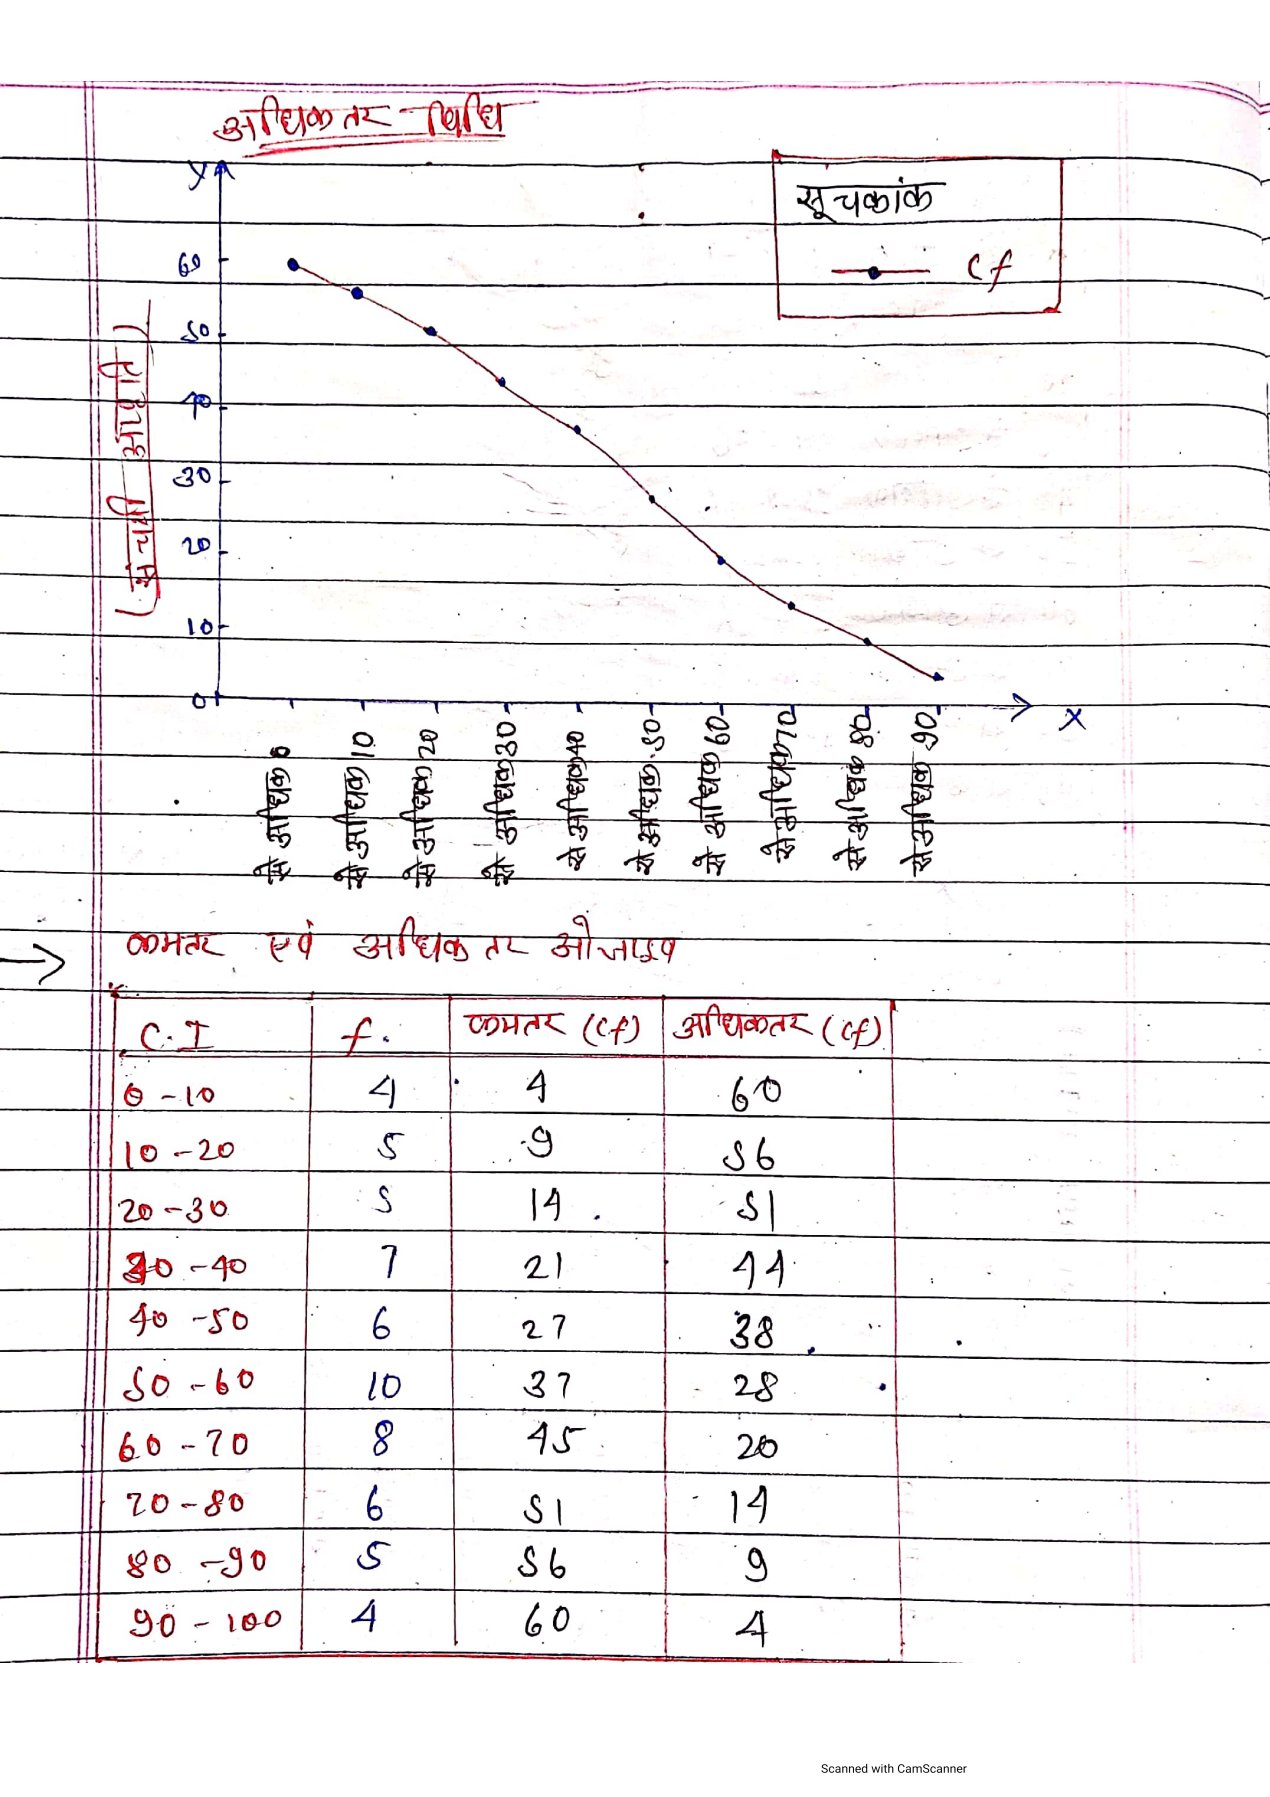 अधिकतर विधि
y
सूचकांक
cf
60
50
40
30
20
10
0
(संचयी आवृत्ति)
x
से अधिक 0
से अधिक 10
से अधिक 20
से अधिक 30
से अधिक 40
से अधिक 50
से अधिक 60
से अधिक 70
से अधिक 80
से अधिक 90
→ कमतर एवं अधिकतर ओजाइव
C.I f. कमतर (cf) अधिकतर (cf)
0 - 10 4 4 60
10 - 20 5 9 56
20 - 30 5 14 51
30 - 40 7 21 44
40 - 50 6 27 38
50 - 60 10 37 28
60 - 70 8 45 20
70 - 80 6 51 14
80 - 90 5 56 9
90 - 100 4 60 4
Scanned with CamScanner